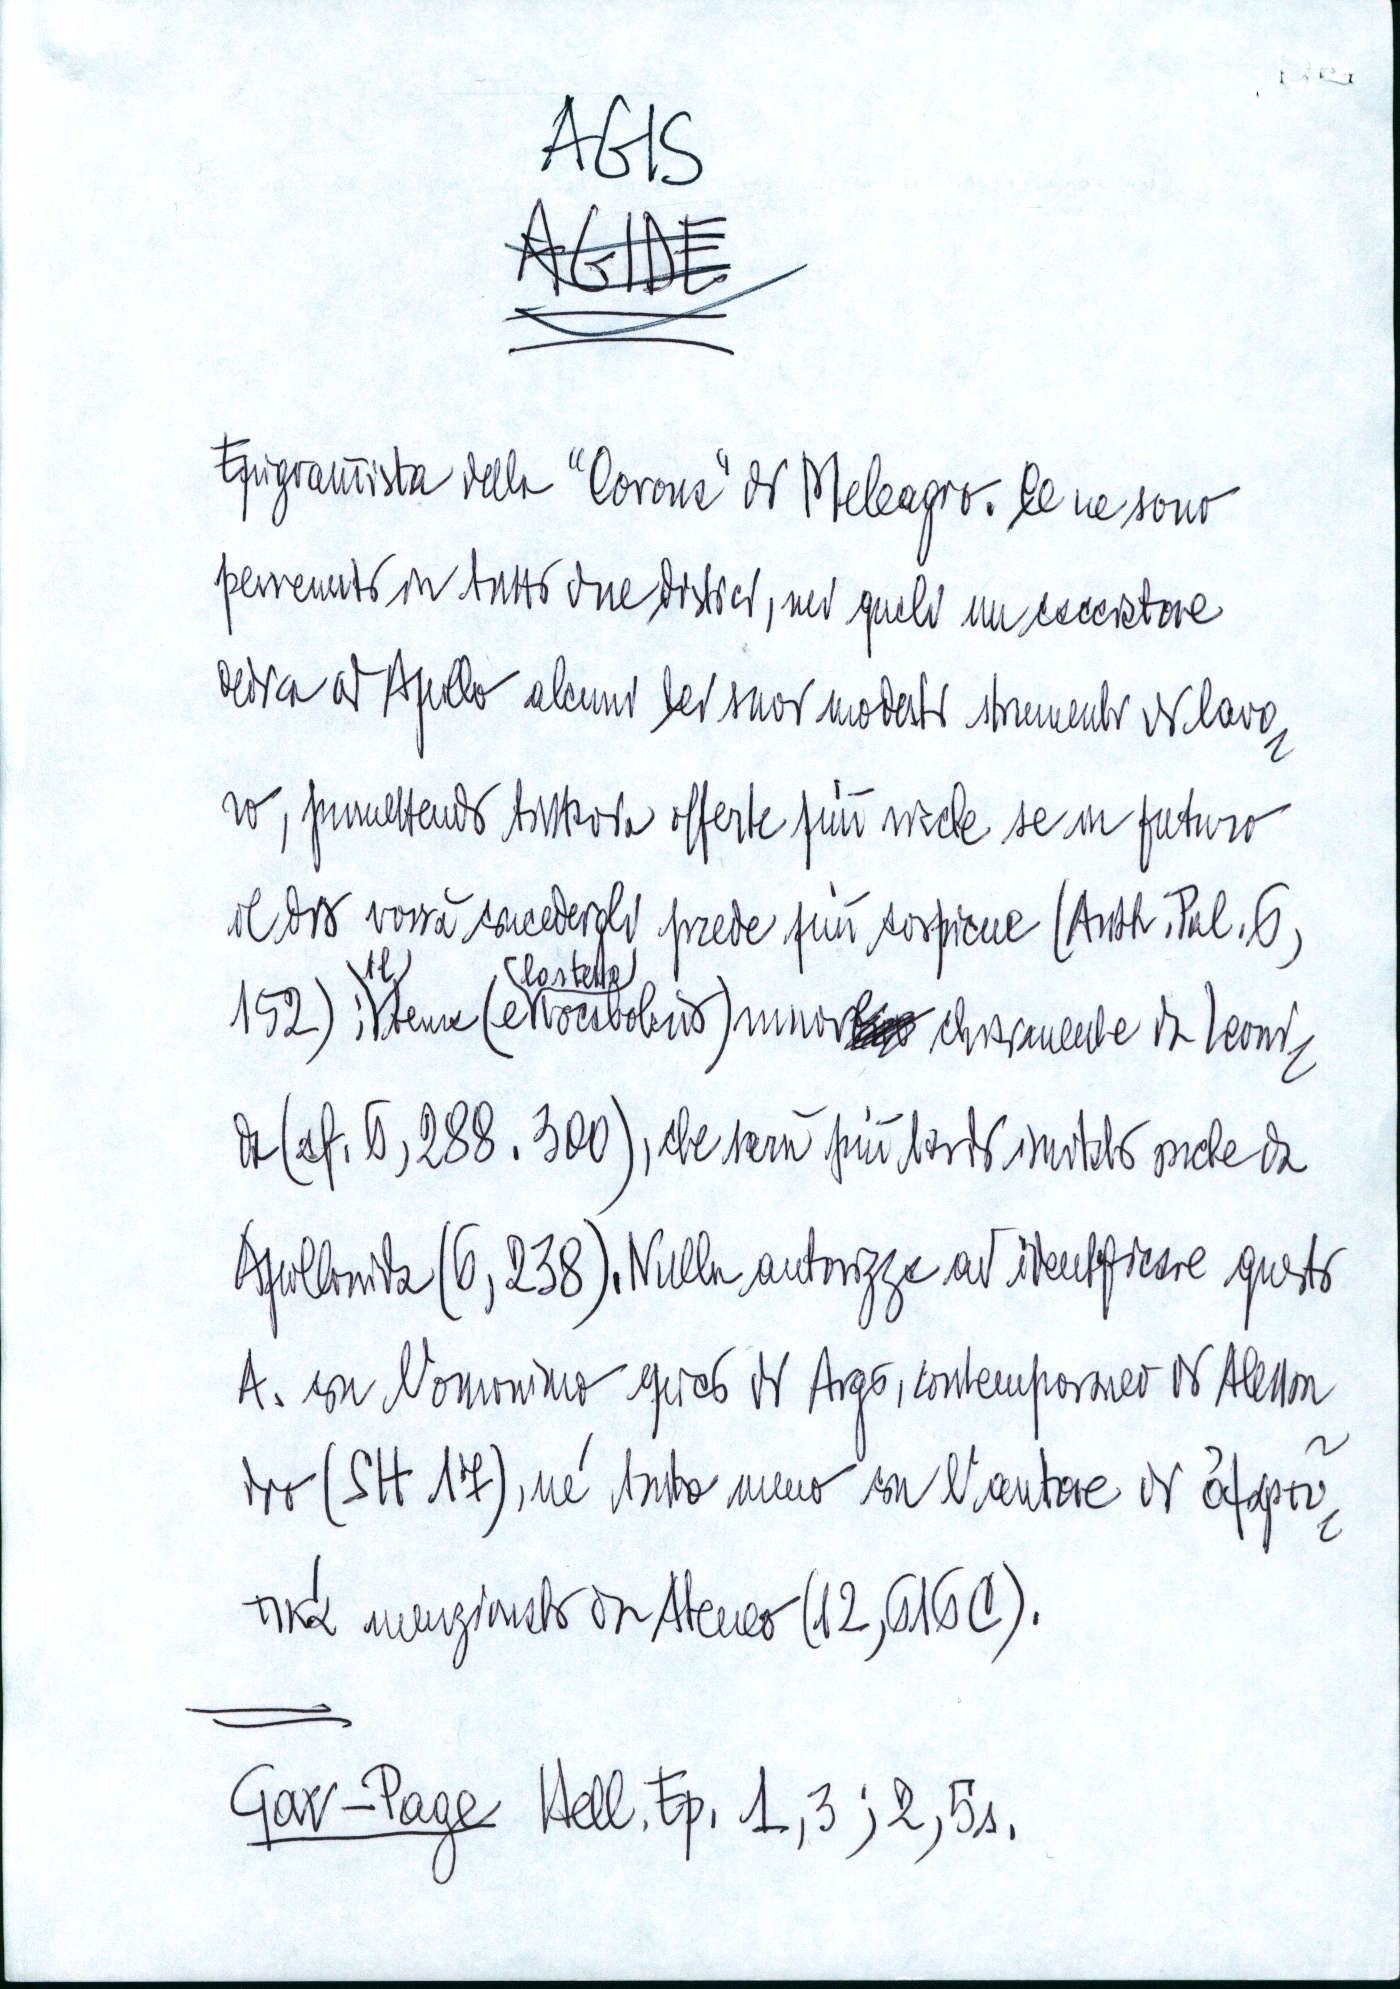 AGIS
AGIDE
Epigrammista della "Corona" di Meleagro. Ce ne sono
pervenuti in tutto due distici, nei quali un cacciatore
dedica ad Apollo alcuni dei suoi modesti strumenti di lavo-
ro, promettendo tuttavia offerte più ricche se in futuro
il dio vorrà concedergli prede più cospicue (Anth. Pal. 6,
152); il tema (e lo stesso vocabolario) muove chiaramente da Leoni-
da (cf. 6, 288. 300), che sarà più tardi imitato anche da
Apollonida (6, 238). Nulla autorizza ad identificare questo
A. con l'omonimo epico di Argo, contemporaneo di Alessan
dro (SH 17), né tanto meno con l'autore di ὀψαρτυ-
τικά menzionato da Ateneo (12, 516 C).
Gow-Page Hell. Ep. 1, 3; 2, 5s.